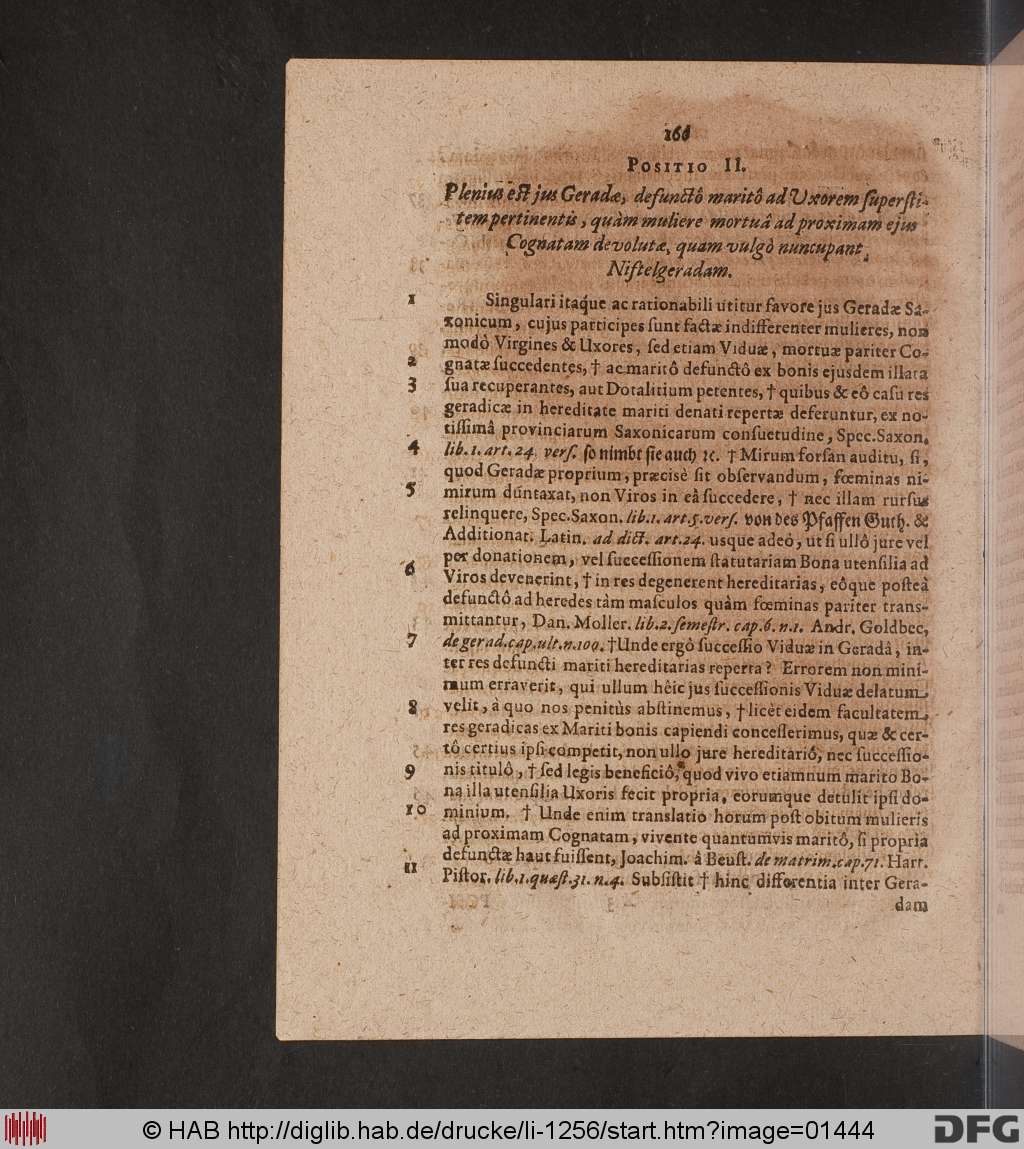 166
POSITIO II.
Plenius est jus Geradæ, defunctô maritô ad Uxorem supersti-
tem pertinentis, quàm muliere mortuâ ad proximam ejus
Cognatam devolutæ, quam vulgò nuncupant
Niftelgeradam.
1 Singulari itaque ac rationabili utitur favore jus Geradæ Sa-
xonicum, cujus participes sunt factæ indifferenter mulieres, non
modò Virgines & Uxores, sed etiam Viduæ, mortuæ pariter Co-
2 gnatæ succedentes, † ac maritô defunctô ex bonis ejusdem illata
3 sua recuperantes, aut Dotalitium petentes, † quibus & eô casu res
geradicæ in hereditate mariti denati repertæ deferuntur, ex no-
tissimâ provinciarum Saxonicarum consuetudine, Spec. Saxon.
4 lib. 1. art. 24. vers. so nimbt sie auch ꝛc. † Mirum forsan auditu, si,
quod Geradæ proprium, præcisè sit observandum, fœminas ni-
5 mirum duntaxat, non Viros in eâ succedere, † nec illam rursus
relinquere, Spec. Saxon. lib. 1. art. 5. vers. von des Pfaffen Guth. &
Additionat. Latin. ad dict. art. 24. usque adeò, ut si ullô jure vel
per donationem, vel successionem statutariam Bona utensilia ad
6 Viros devenerint, † in res degenerent hereditarias, eôque posteà
defunctô ad heredes tàm masculos quàm fœminas pariter trans-
mittantur, Dan. Moller. lib. 2. semestr. cap. 6. n. 1. Andr. Goldbec,
7 de gerad. cap. ult. n. 109. † Unde ergò successio Viduæ in Geradâ, in-
ter res defuncti mariti hereditarias reperta? Errorem non mini-
mum erraverit, qui ullum hêic jus successionis Viduæ delatum
8 velit, à quo nos penitùs abstinemus, † licèt eidem facultatem,
res geradicas ex Mariti bonis capiendi concesserimus, quæ & cer-
tô certius ipsi competit, non ullo jure hereditariô, nec successio-
9 nis titulô, † sed legis beneficiô, quod vivo etiamnum marito Bo-
na illa utensilia Uxoris fecit propria, eorumque detulit ipsi do-
10 minium. † Unde enim translatio horum post obitum mulieris
ad proximam Cognatam, vivente quantumvis maritô, si propria
defunctæ haut fuissent, Joachim. à Beust. de matrim. cap. 71. Hart.
11 Pistor. lib. 1. quæst. 31. n. 4. Subsistit † hinc differentia inter Gera-
dam
© HAB http://diglib.hab.de/drucke/li-1256/start.htm?image=01444
DFG